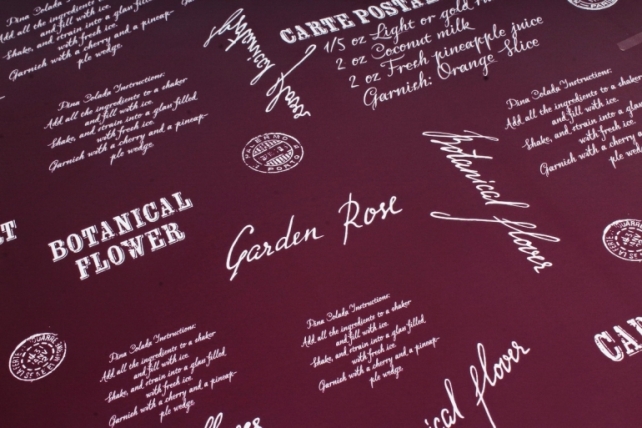 Add all the ingredients to a shaker
and fill with ice.
Shake, and strain into a glass filled
with fresh ice.
Garnish with a cherry and a pineap-
ple wedge.
CARTE POSTA
1/5 oz Light or gold
2 oz Coconut milk
2 oz Fresh pineapple juice
Garnish: Orange Slice
Pina Colada Instructions:
Add all the ingredients to a shaker
and fill with ice.
Shake, and strain into a glass filled
with fresh ice.
Garnish with a cherry and a pineap-
ple wedge.
Pina Colada Instructions:
Add all the ingredients to a
and fill with ice.
Shake, and strain into a
with fresh ice.
Garnish with a cherry and a
ple
Botanical
flover
BOTANICAL
FLOWER
Garden Rose
Pina Colada Instructions:
Add all the ingredients to a shaker
and fill with ice.
Shake, and strain into a glass filled
with fresh ice.
Garnish with a cherry and a pineap-
ple wedge.
Pina Colada Instructions:
Add all the ingredients to a shaker
and fill with ice.
Shake, and strain into a glass filled
with fresh ice.
Garnish with a cherry and a pineap-
ple wedge.
flover
CA